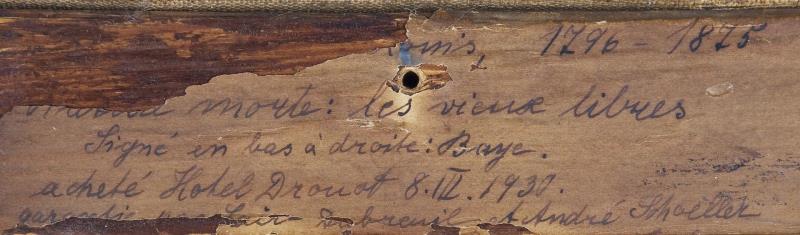 1796 - 1875
morte: les vieux libres
Signé en bas à droite: Baye.
acheté Hotel Drouot 8.III.1930.
Dubreuil et André Schoeller